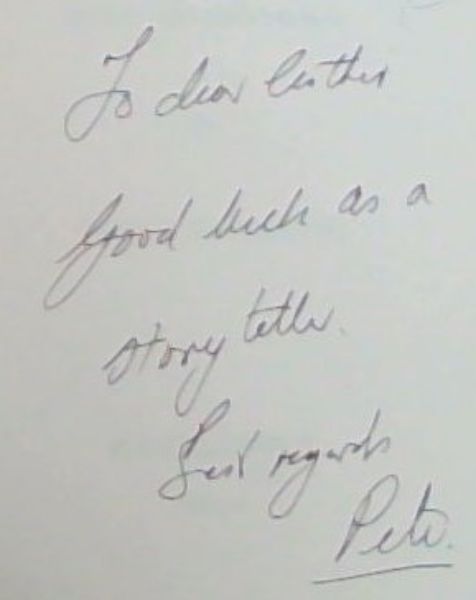 To dear Esther
Good luck as a
story teller.
Best regards
Peter.